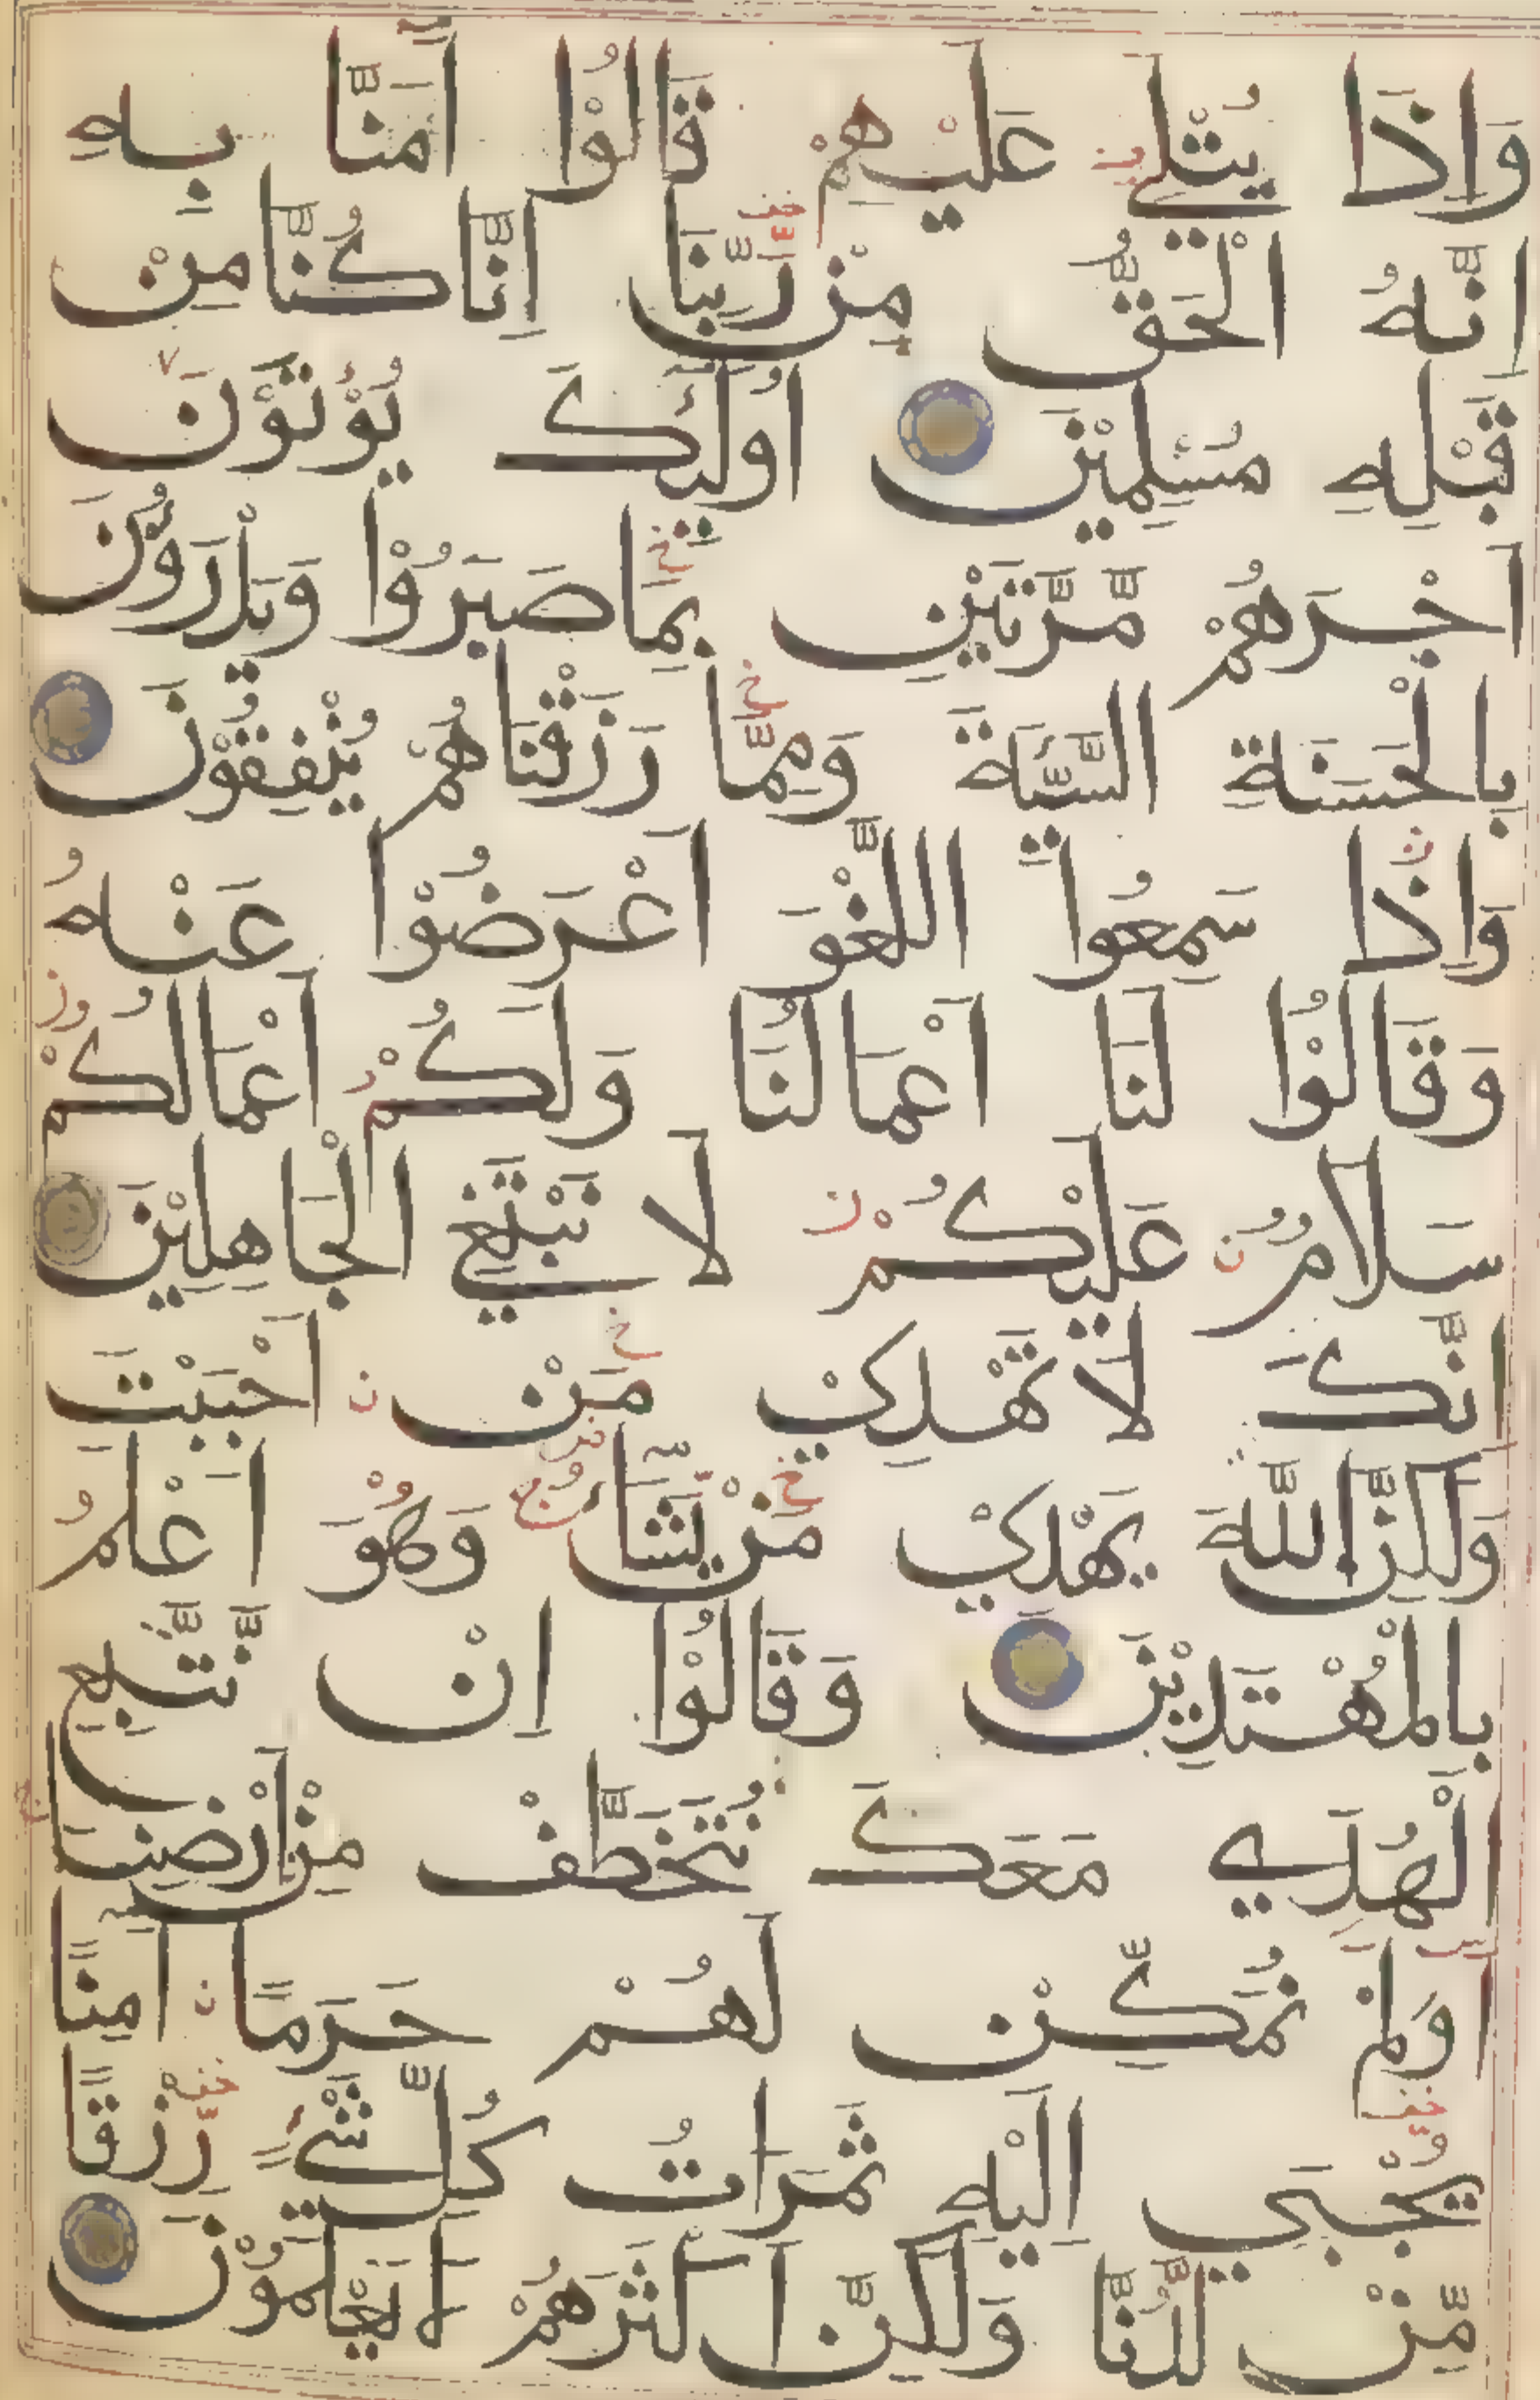 وَاِذَا يُتْلٰي عَلَيْهِمْ قَالُوْا اٰمَنَّا بِهِ
اِنَّهُ الْحَقُّ مِنْ رَّبِّنَا اِنَّا كُنَّا مِنْ
قَبْلِهِ مُسْلِمِيْنَ اُولٰٓئِكَ يُؤْتَوْنَ
اَجْرَهُمْ مَّرَّتَيْنِ بِمَا صَبَرُوْا وَيَدْرَؤُنَ
بِالْحَسَنَةِ السَّيِّئَةَ وَمِمَّا رَزَقْنَاهُمْ يُنْفِقُوْنَ
وَاِذَا سَمِعُوا اللَّغْوَ اَعْرَضُوْا عَنْهُ
وَقَالُوْا لَنَا اَعْمَالُنَا وَلَكُمْ اَعْمَالُكُمْ
سَلَامٌ عَلَيْكُمْ لَا نَبْتَغِي الْجَاهِلِيْنَ
اِنَّكَ لَا تَهْدِيْ مَنْ اَحْبَبْتَ
وَلٰكِنَّ اللّٰهَ يَهْدِيْ مَنْ يَّشَآءُ وَهُوَ اَعْلَمُ
بِالْمُهْتَدِيْنَ وَقَالُوْا اِنْ نَّتَّبِعِ
الْهُدٰي مَعَكَ نُتَخَطَّفْ مِنْ اَرْضِنَا
اَوَلَمْ نُمَكِّنْ لَهُمْ حَرَمًا اٰمِنًا
يُّجْبٰي اِلَيْهِ ثَمَرَاتُ كُلِّ شَيْءٍ رِّزْقًا
مِّنْ لَّدُنَّا وَلٰكِنَّ اَكْثَرَهُمْ لَا يَعْلَمُوْنَ